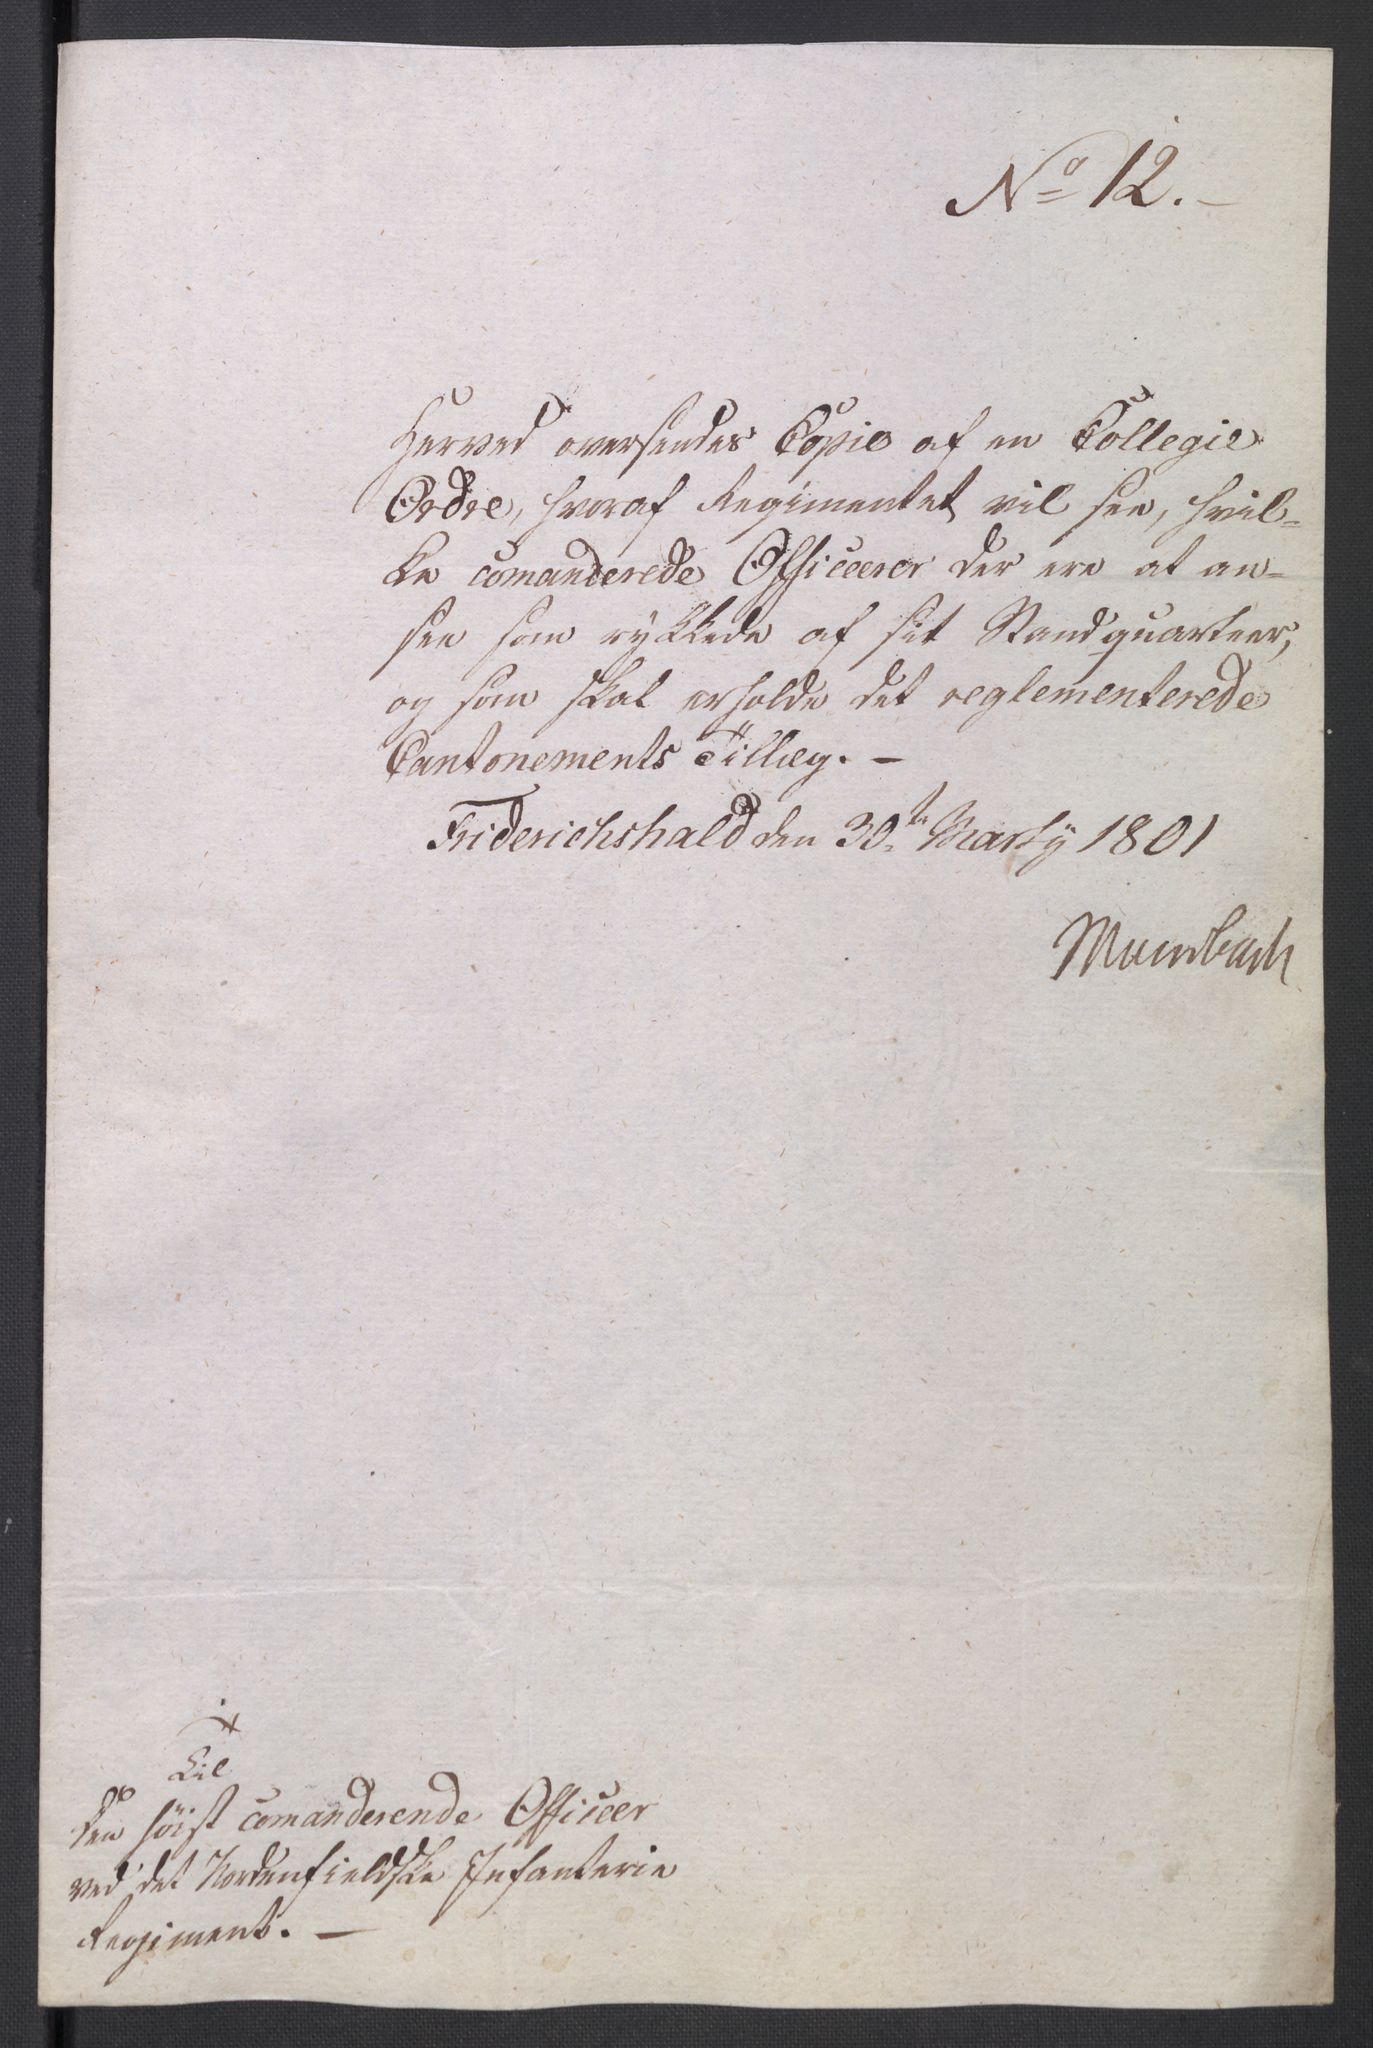 No 12.
Herved oversendes Copie af en Collegie
Ordre, hvoraf Regimentet vil see, hvil-
ke comanderede Officeerer der ere at an-
see som rykkede af sit Standquarteer,
og som skal erholde det reglementerede
Cantonements Tillæg. –
Friderichshald den 30te Martÿ 1801
Mansbach
Til
Den høist comanderende Officeer
ved det Nordenfieldske Infanterie
Regiment. –